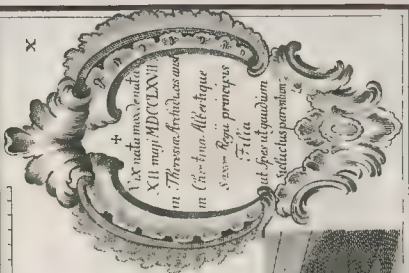 +
Vix nata mox denata
XVI maji MDCCLXVII
m Theresia Archiducis aust
m Christina Albertique
Saxon Regii principis
Filia
ut spes ut gaudium
sic luctus parentibus
X